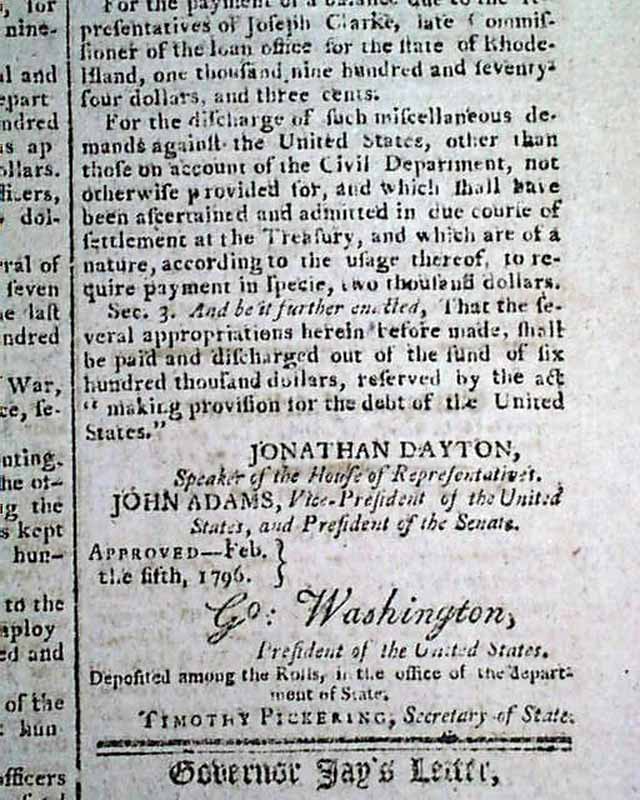 , for
nine-
al and
epart
ndred
s ap
ollars.
ficers,
dol-
ral of
ſeven
e laſt
ndred
War,
ce, ſe-
nting.
he ot-
ng the
s kept
hun-
to the
mploy
ed and
of the
hun
officers
For the payment of a balance due to the re-
preſentatives of Joſeph Clarke, late Commiſ-
ſioner of the loan office for the ſtate of Rhode-
Iſland, one thouſand nine hundred and ſeventy-
four dollars, and three cents.
For the diſcharge of ſuch miſcellaneous de-
mands againſt the United States, other than
thoſe on account of the Civil Department, not
otherwiſe provided for, and which ſhall have
been aſcertained and admitted in due courſe of
ſettlement at the Treaſury, and which are of a
nature, according to the uſage thereof, to re-
quire payment in ſpecie, two thouſand dollars.
Sec. 3. And be it further enacted, That the ſe-
veral appropriations herein before made, ſhall
be paid and diſcharged out of the fund of ſix
hundred thouſand dollars, reſerved by the act
“ making proviſion for the debt of the United
States.”
JONATHAN DAYTON,
Speaker of the Houſe of Repreſentatives.
JOHN ADAMS, Vice-Preſident of the United
States, and Preſident of the Senate.
APPROVED—Feb. }
the fifth, 1796.
Go: Waſhington,
Preſident of the United States.
Depoſited among the Rolls, in the office of the depart-
ment of State.
TIMOTHY PICKERING, Secretary of State.
Governor Jay's Letter,